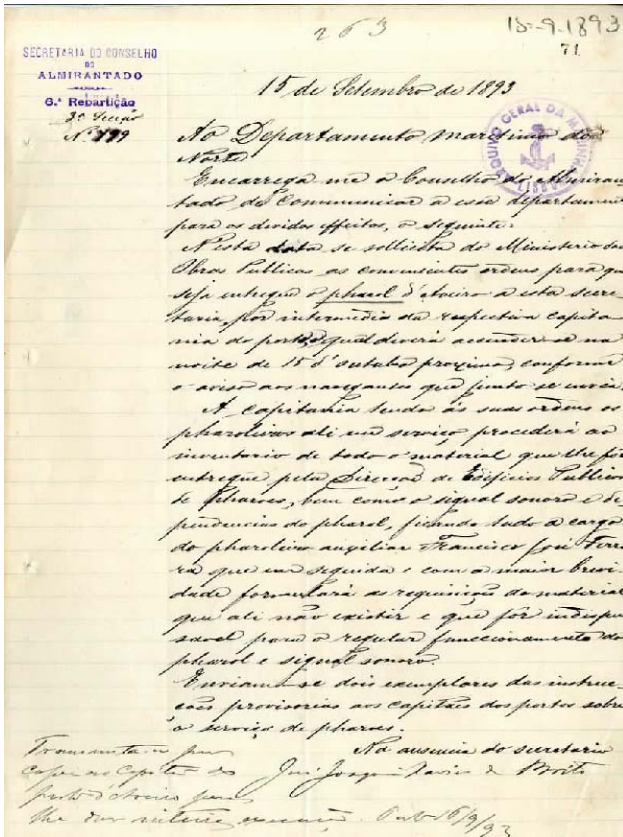 263
15-9-1893
71
SECRETARIA DO CONSELHO
DO
ALMIRANTADO
6.ª Repartição
3ª Secção
Nº 199
ARQUIVO GERAL DA MARINHA
LISBOA
15 de Setembro de 1893
Ao Departamento maritimo do
Norte
Encarrega me o Conselho do Almiran
tado de communicar a esse departamento
para os devidos effeitos, o seguinte:
N'esta data se sollicita do Ministerio das
Obras Publicas as convenientes ordens para que
seja entregue o pharol d'Aveiro a esta secre
taria, por intermedio da respectiva capita
nia do porto, o qual deverá accender-se na
noite de 15 d'outubro proximo, conforme
o aviso aos navegantes que junto se envia.
A capitania tendo ás suas ordens os
pharoleiros ali em serviço, procederá ao
inventario de todo o material que lhe fôr
entregue pela Direcção de Edificios Publicos
e Pharoes, bem como o signal sonoro e de
pendencias do pharol, ficando tudo a cargo
do pharoleiro auxiliar Francisco José Ferrei
ra que em seguida e com a maior brevi
dade formulará as requisições do material
que ali não existir e que fôr indispen
savel para o regular funccionamento do
pharol e signal sonoro.
Enviam-se dois exemplares das instruc
ções provisorias aos capitães dos portos sobre
o serviço de pharoes.
Na ausencia do secretario
José Joaquim Xavier de Brito
Transmitta por
copia ao Capitão do
porto d'Aveiro para
lhe dar inteira execução. 16/9/93